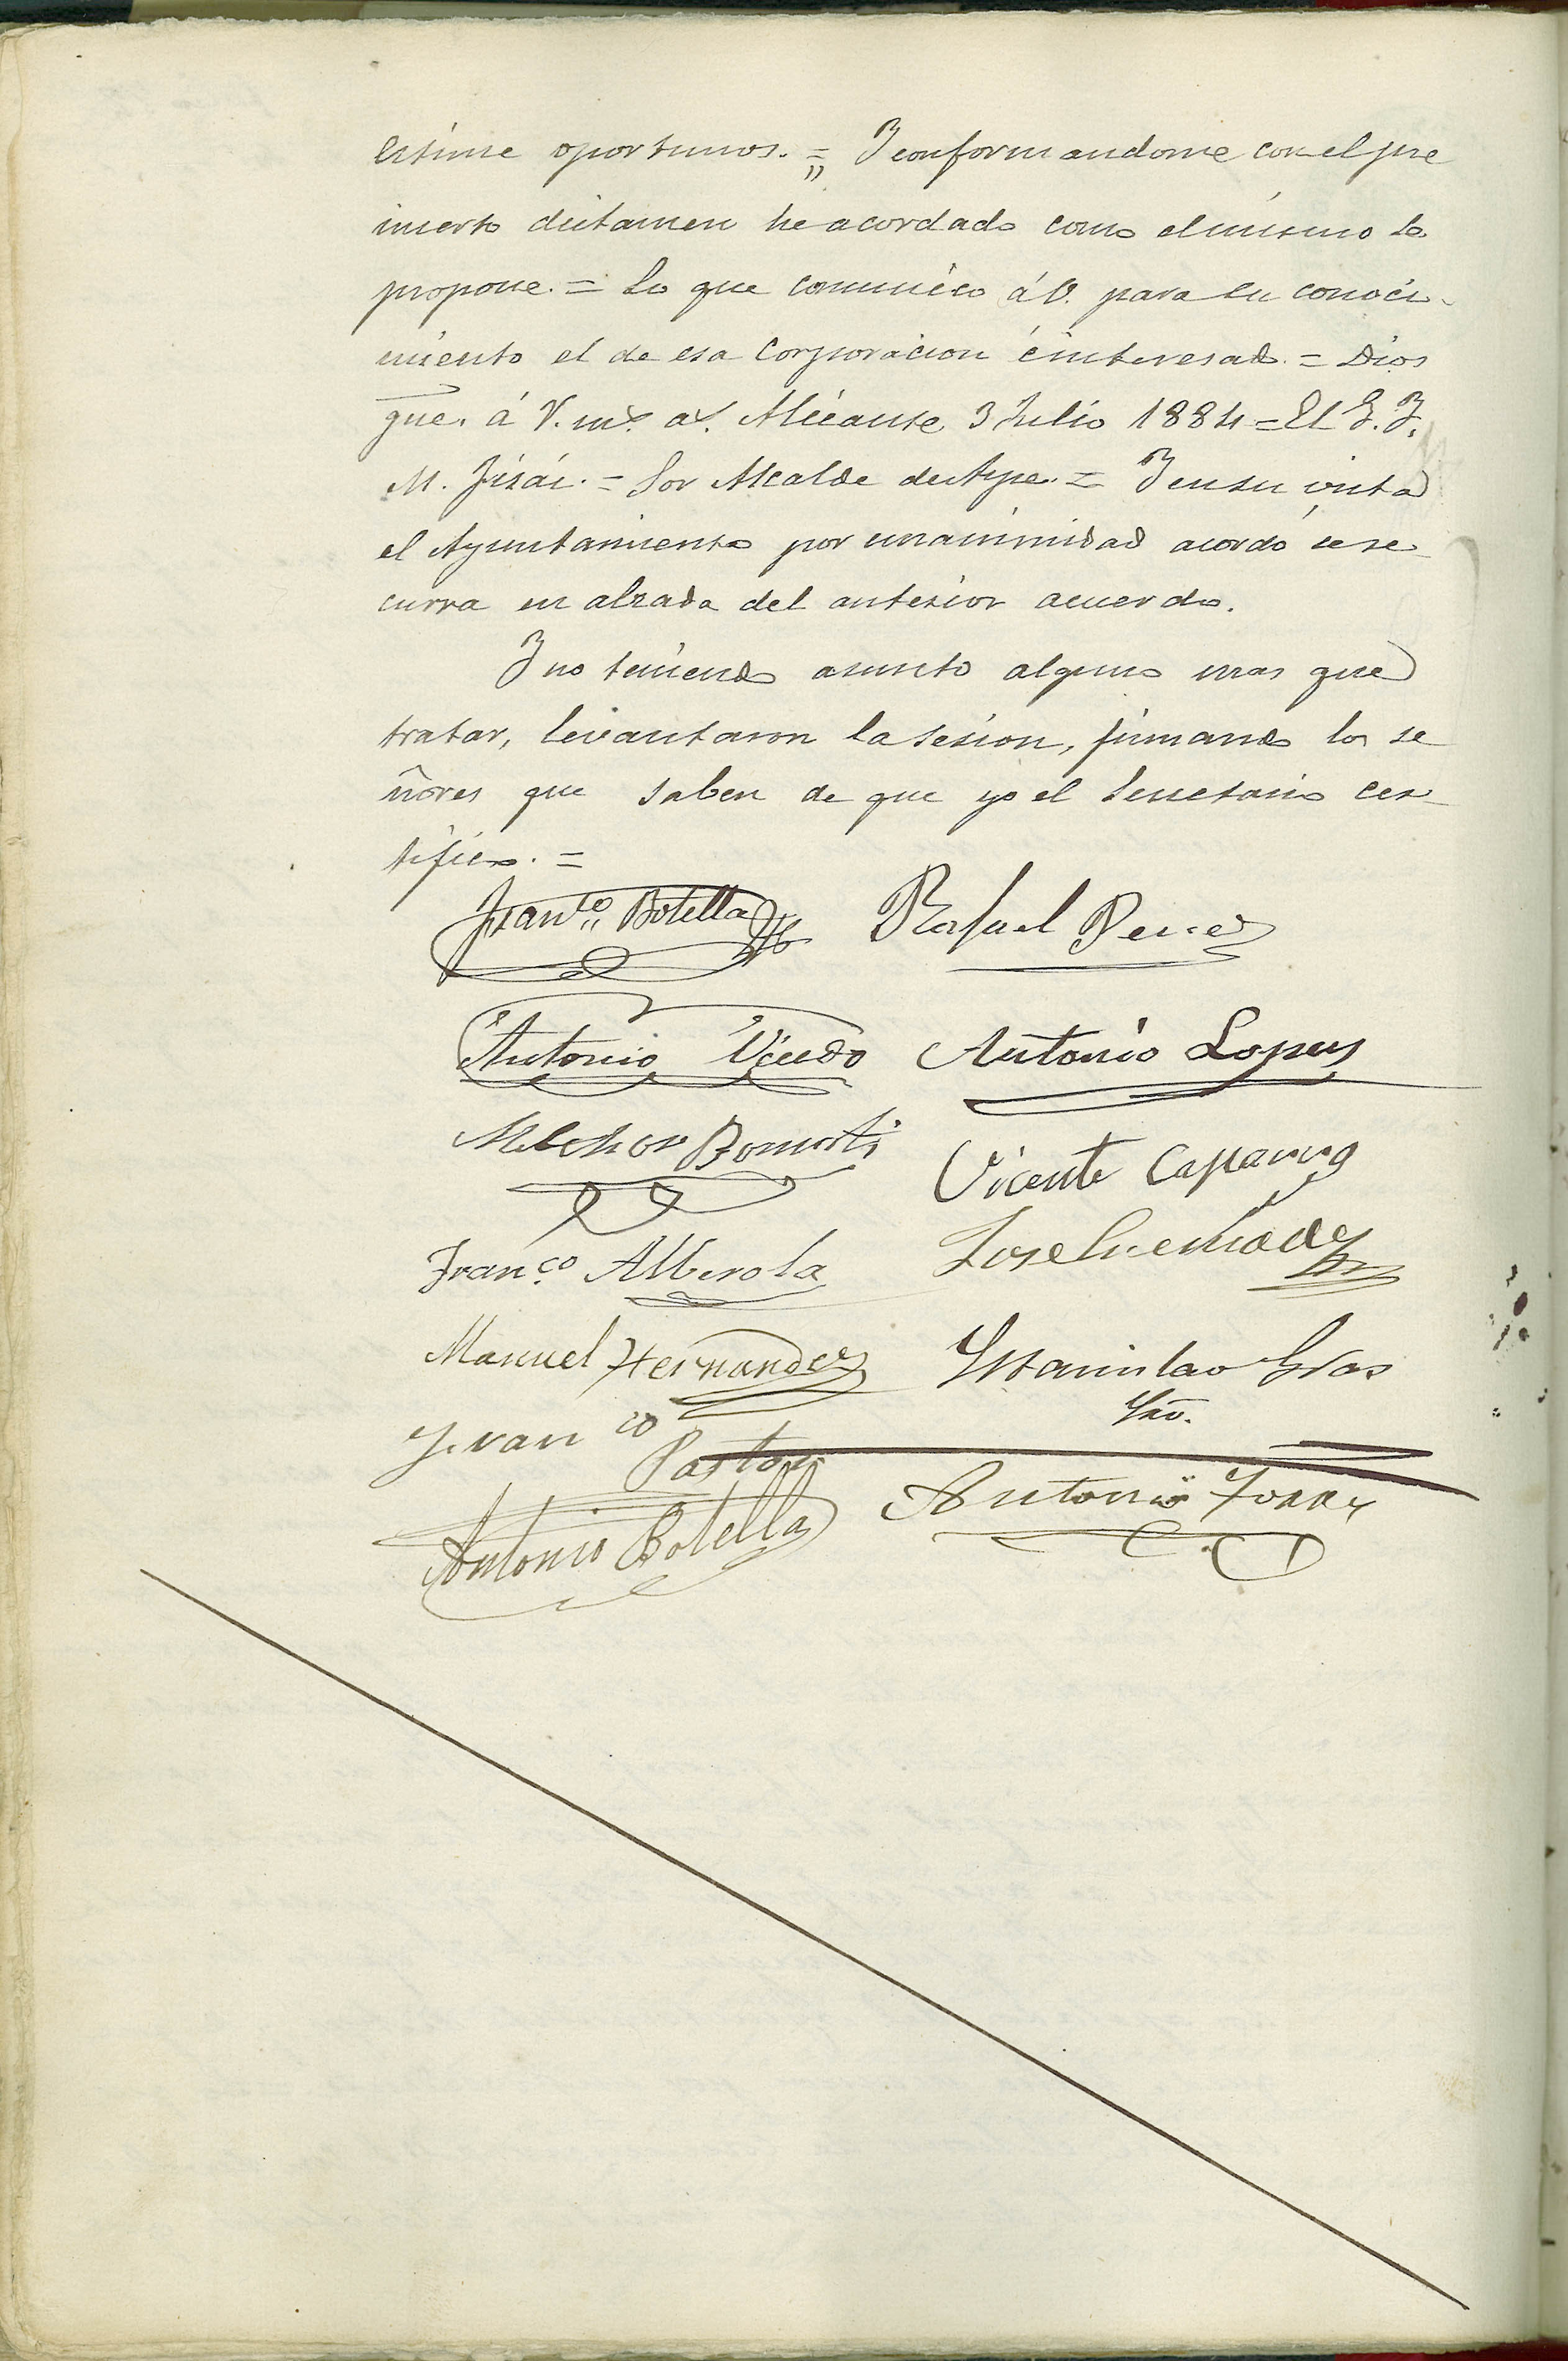 estime oportunos. = Y conformandome con el pre
inserto dictamen he acordado como el mismo lo
propone. = Lo que comunico á V. para su conoci-
miento el de esa Corporacion é interesado. = Dios
gue. á V. ms. as. Alicante 3 Julio 1884 = El G. Y.
M. = Sor Alcalde de Aspe. = Y en su vista
el Ayuntamiento por unanimidad acordó se re-
curra en alzada del anterior acuerdo.
Y no teniendo asunto alguno mas que
tratar, levantaron la sesion, firmando los se
ñores que saben de que yo el Secretario cer-
tifico. =
Franco Botella Rafael Perez
Antonio Antonio Lopez
Melchor Vicente Caparros
Franco Alberola Jose
Manuel Hernandez Estanislao Gras
Srio.
Franco
Pastor
Antonio Botella Antonio Torres